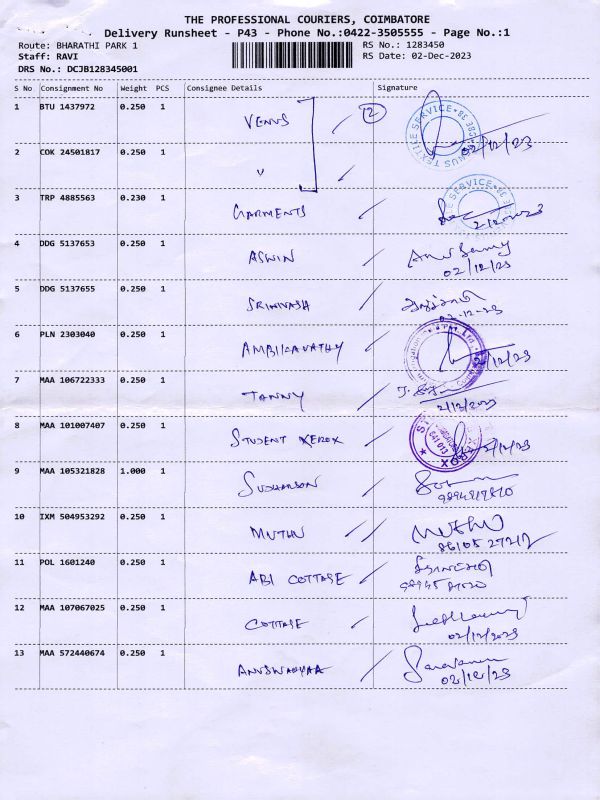 THE PROFESSIONAL COURIERS, COIMBATORE
Delivery Runsheet - P43 - Phone No.:0422-3505555 - Page No.:1
Route: BHARATHI PARK 1
RS No.: 1283450
Staff: RAVI
RS Date: 02-Dec-2023
DRS No.: DCJB128345001
S No Consignment No Weight PCS Consignee Details Signature
1 BTU 1437972 0.250 1 VENUS 2 02/12/23
2 COK 24501817 0.250 1 V
3 TRP 4885563 0.230 1 GARMENTS
4 DDG 5137653 0.250 1 ASWIN
02/12/23
5 DDG 5137655 0.250 1 SRINIVASH
02-12-23
6 PLN 2303040 0.250 1 AMBIKAVATHY
7 MAA 106722333 0.250 1 TANNY
2/12/2023
8 MAA 101007407 0.250 1 STUDENT XEROX
9 MAA 105321828 1.000 1 SUDHARSON
10 IXM 504953292 0.250 1 MUTHU MUTHU
11 POL 1601240 0.250 1 ABI COTTAGE
12 MAA 107067025 0.250 1 COTTAGE
02/12/2023
13 MAA 572440674 0.250 1
02/12/23